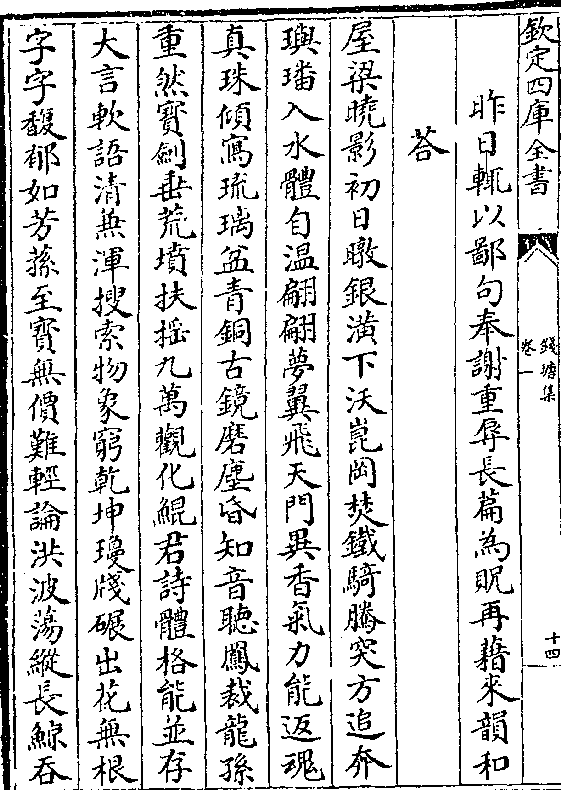 欽定四庫全書
錢塘集
卷一
十四
昨日輒以鄙句奉謝重辱長篇為貺再藉來韻和
荅
屋梁曉影初日暾銀潢下沃崑岡焚鐵騎騰突方追奔
璵璠入水體自温翩翩夢翼飛天門異香氣力能返魂
真珠傾寫琉璃盆青銅古鏡磨塵昏知音聽鳳裁龍孫
重然寳劍垂荒墳扶揺九萬觀化鯤君詩體格能並存
大言軟語清無渾搜索物象窮乾坤瓊牋碾出花無根
字字馥郁如芳蓀至寳無價難輕論洪波蕩縱長鯨吞